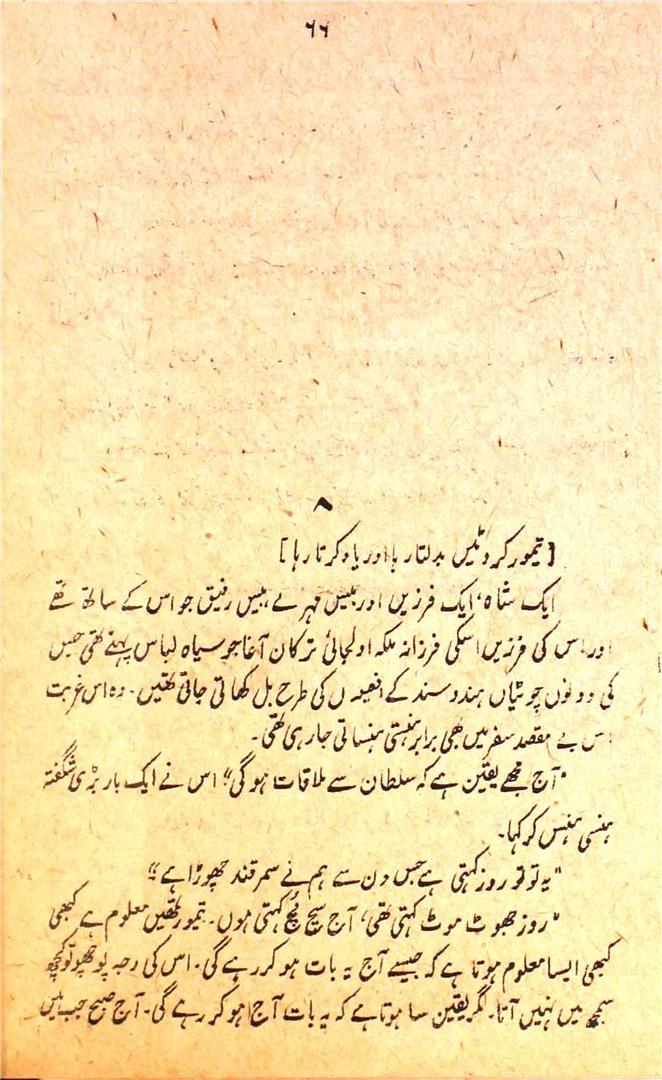 ۶۶
۸
[تیمور کروٹیں بدلتا رہا اور یاد کرتا رہا]
ایک شاہ، ایک فرزیں اور بیس مہرے، بیس رفیق جو اس کے ساتھ تھے
اور اس کی فرزیں اسکی فرزانہ ملکہ اولجائی ترکان آغا جو سیاہ لباس پہنے تھی جس
کی دونوں چوٹیاں ہندوسند کے افعیوں کی طرح بل کھاتی جاتی تھیں۔ وہ اس غربت
اس بے مقصد سفر میں بھی برابر ہنستی ہنساتی جا رہی تھی۔
"آج مجھے یقین ہے کہ سلطان سے ملاقات ہو گی" اس نے ایک بار بڑی شگفتہ
ہنسی ہنس کر کہا۔
"یہ تو تو روز کہتی ہے جس دن سے ہم نے سمرقند چھوڑا ہے"
"روز جھوٹ موٹ کہتی تھی، آج سچ مچ کہتی ہوں۔ تیمور تمھیں معلوم ہے کبھی
کبھی ایسا معلوم ہوتا ہے کہ جیسے آج یہ بات ہو کر رہے گی۔ اس کی وجہ پوچھو تو کچھ
سمجھ میں نہیں آتا۔ مگر یقین سا ہوتا ہے کہ یہ بات آج ہو کر رہے گی۔ آج صبح جب میں